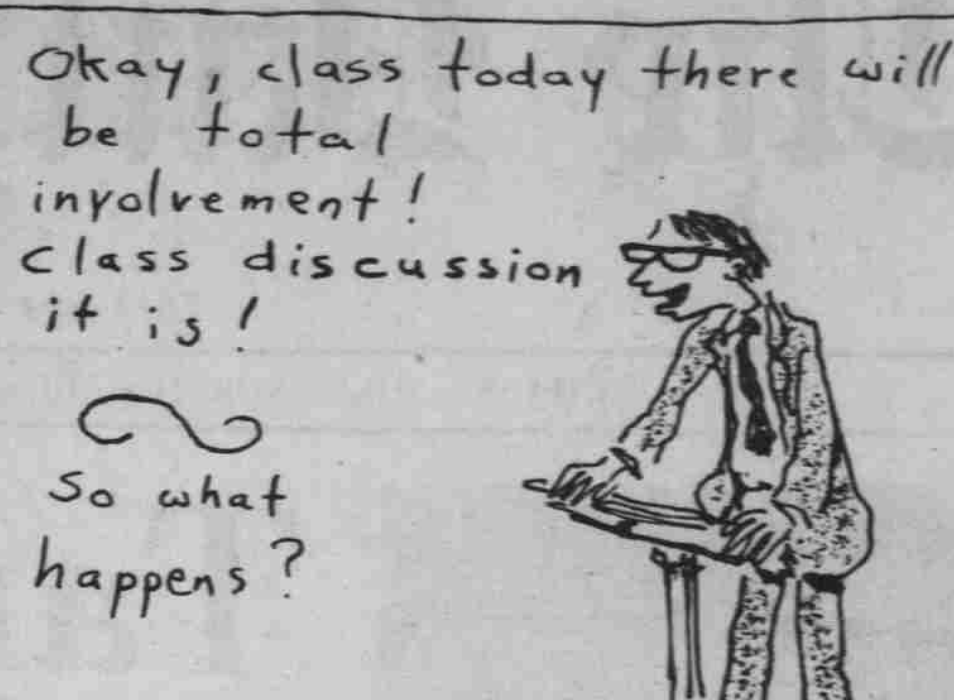 Okay, class today there will
be total
involvement!
class discussion
it is!
So what
happens?